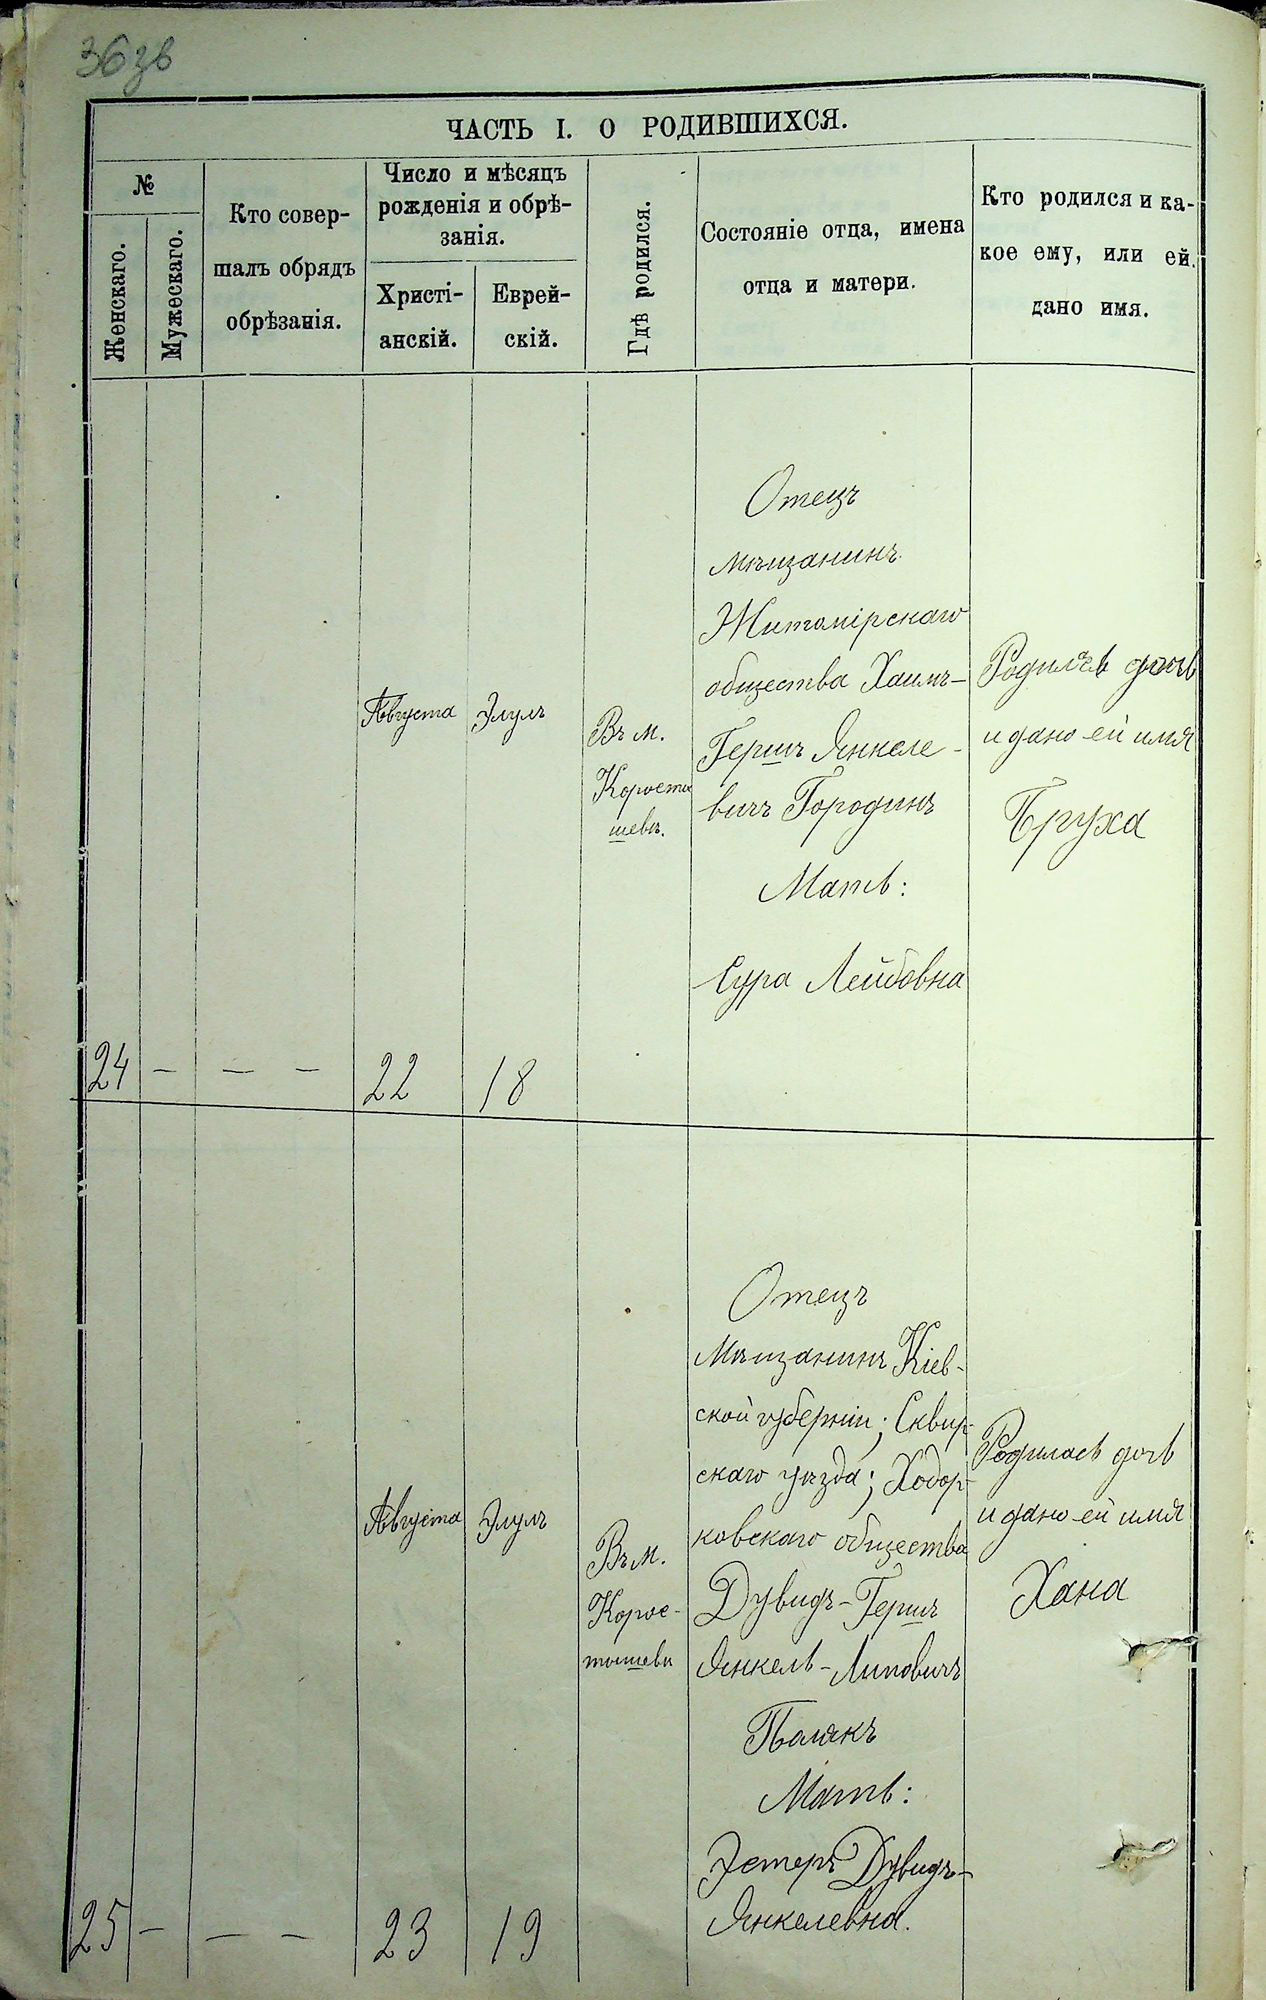 36зв
ЧАСТЬ I. О РОДИВШИХСЯ.
№
Женскаго.
Мужескаго.
Кто совер-
шалъ обрядъ
обрѣзанія.
Число и мѣсяцъ
рожденія и обрѣ-
занія.
Христі-
анскій.
Еврей-
скій.
Гдѣ родился.
Состояніе отца, имена
отца и матери.
Кто родился и ка-
кое ему, или ей.
дано имя.
24
—
— —
Августа
22
Элулъ
18
Въ м.
Коросты
шевѣ.
Отецъ
мѣщанинъ
Житомірскаго
общества Хаимъ-
Гершъ Янкеле-
вичъ Городинъ
Мать:
Сура Лейбовна
Родилась дочь
и дано ей имя
Бруха
25
—
— —
Августа
23
Элулъ
19
Въ м.
Корос-
тышевѣ
Отецъ
Мѣщанинъ Кіев-
ской губерніи; Сквир-
скаго уѣзда; Ходор-
ковскаго общества
Дувидъ-Гершъ
Янкель-Липовичъ
Полякъ
Мать:
Эстеръ Дувидъ-
Янкелевна.
Родилась дочь
и дано ей имя
Хана